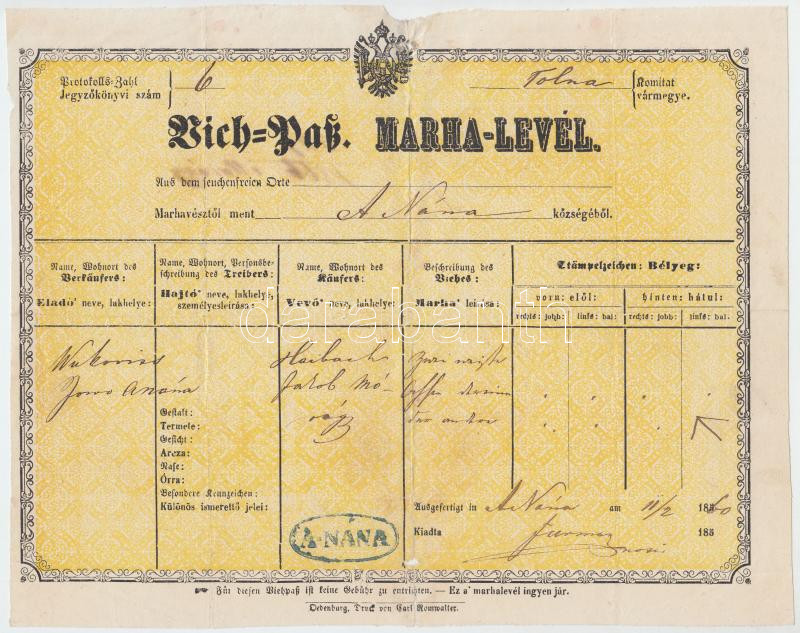 Protokolls-Zahl
Jegyzőkönyvi szám
6
Tolna
Komitat
vármegye.
Vieh-Paß. MARHA-LEVÉL.
Aus dem seuchenfreien Orte
Marhavésztől ment A Nána községéből.
Name, Wohnort des
Verkäufers:
Eladó' neve, lakhelye:
Name, Wohnort, Personsbe-
schreibung des Treibers:
Hajtó' neve, lakhelye,
személyesleirása:
Name, Wohnort des
Käufers:
Vevő' neve, lakhelye:
Beschreibung des
Viehes:
Marha' leirása:
Stämpelzeichen: Bélyeg:
vorn: elől:
hinten: hátul:
rechts: jobb:
links: bal:
rechts: jobb:
links: bal:
darabanth
Jowo Anána
Jakob Mó-
rágy
Gestalt:
Termete:
Gesicht:
Arcza:
Nase:
Órra:
Besondere Kennzeichen:
Különös ismertető jelei:
A-NÁNA
Ausgefertigt in A Nána am 11/2 1860
Kiadta 185
Für diesen Viehpaß ist keine Gebühr zu entrichten. — Ez a' marhalevél ingyen jár.
Oedenburg, Druck von Carl Romwalter.